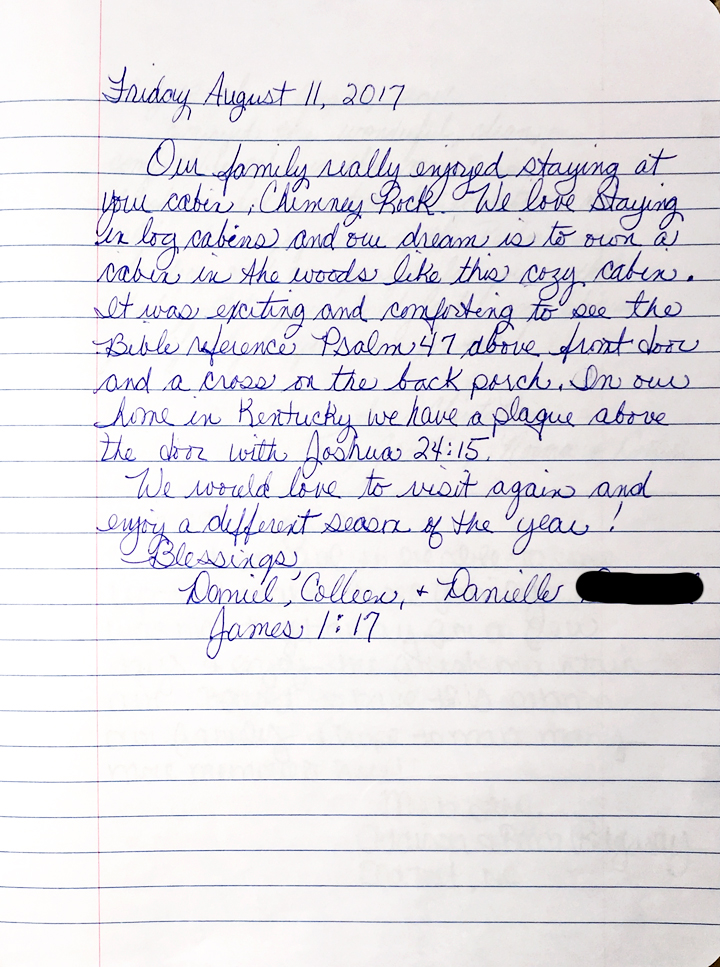 Friday August 11, 2017
Our family really enjoyed staying at
your cabin, Chimney Rock. We love Staying
in log cabins and our dream is to own a
cabin in the woods like this cozy cabin.
It was exciting and comforting to see the
Bible reference Psalm 47 above front door
and a cross on the back porch. In our
home in Kentucky we have a plaque above
the door with Joshua 24:15.
We would love to visit again and
enjoy a different season of the year!
Blessings,
Daniel, Colleen, + Danielle
James 1:17